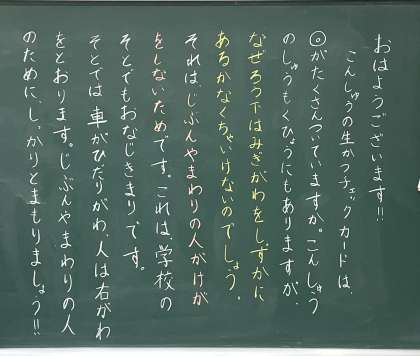 おはようございます!!
こんしゅうの生かつチェックカードは、
◎がたくさんついていますか。こんしゅう
のしゅうもくひょうにもありますが、
なぜろう下はみぎがわをしずかに
あるかなくちゃいけないのでしょう。
それは、じぶんやまわりの人がけが
をしないためです。これは学校の
そとでもおなじきまりです。
そとでは車がひだりがわ、人は右がわ
をとおります。じぶんやまわりの人
のために、しっかりとまもりましょう!!